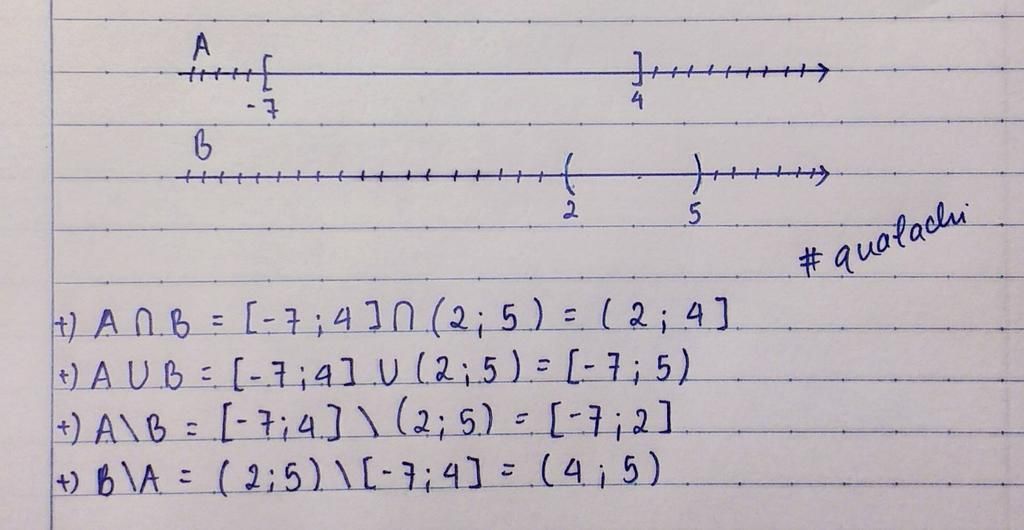 A
[ ]
-7 4
B
( )
2 5
# quatachi
+) A ∩ B = [-7;4] ∩ (2;5) = (2;4]
+) A ∪ B = [-7;4] ∪ (2;5) = [-7;5)
+) A\B = [-7;4] \ (2;5) = [-7;2]
+) B\A = (2;5) \ [-7;4] = (4;5)